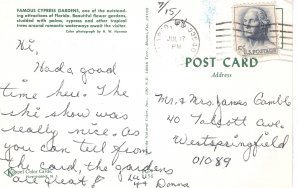 FAMOUS CYPRESS GARDENS, one of the outstanding attractions of Florida. Beautiful flower gardens, studded with palms, cypress and other tropical trees around romantic waterways await the visitor.
Color photograph by H. W. Hannau
8/15/68
JUL 17
PM
5¢ U.S. POSTAGE
POST CARD
Address
Hi,
Had a good
time here. The
ski show was
really nice. As
you can tell from
the card, the gardens
are great!
Love
Donna
Mr. & Mrs. James Camble
40 Talcott Ave.
West Springfield
01089
Color Cards